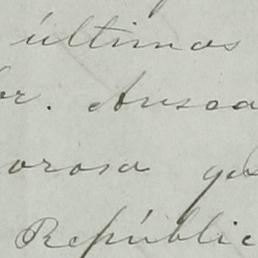 últimos
or. Ansea
orosa qu
Repúblic